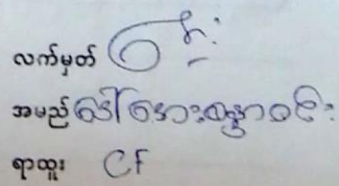 လက်မှတ်
အမည် ဒေါ်အေးသန္တာဝင်း
ရာထူး CF